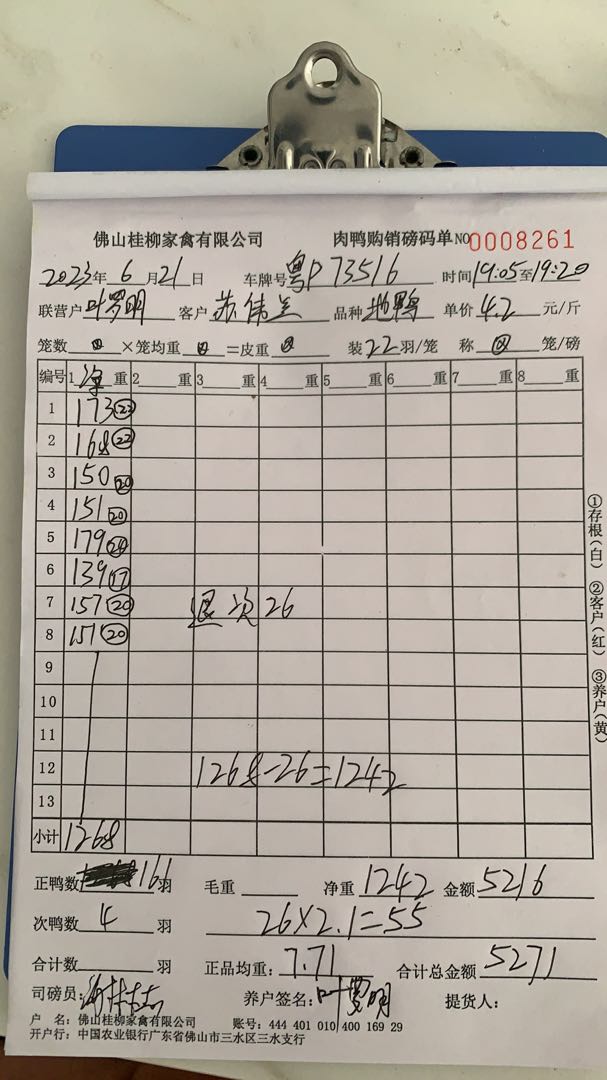 佛山桂柳家禽有限公司 肉鸭购销磅码单 NO 0008261
2023年 6月21日 车牌号 粤P 73516 时间 19:05至19:20
联营户 叶罗明 客户 苏伟兰 品种 地鸭 单价 4.2 元/斤
笼数 ×笼均重 =皮重 装 22 羽/笼 称 笼/磅
编号 1 净重 2 重 3 重 4 重 5 重 6 重 7 重 8 重
1 173 22
2 168 22
3 150 20
4 151 20
5 179 24
6 139 17
7 157 20 退次26
8 151 20
9
10
11
12 1268-26=1242
13
小计 1268
正鸭数 161 羽 毛重 净重 1242 金额 5216
次鸭数 4 羽 26×2.1=55
合计数 羽 正品均重: 7.71 合计总金额 5271
司磅员: 养户签名: 叶罗明 提货人:
户 名: 佛山桂柳家禽有限公司 账号: 444 401 010 400 169 29
开户行: 中国农业银行广东省佛山市三水区三水支行
①存根(白) ②客户(红) ③养户(黄)